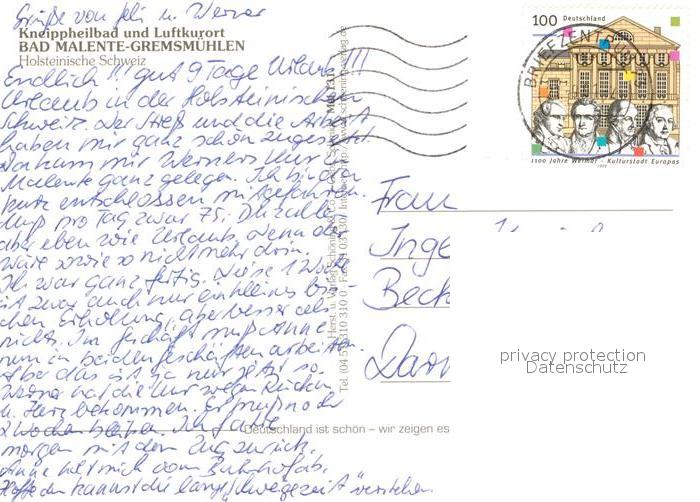 Grüße von Jeli u. Werner
Kneippheilbad und Luftkurort
BAD MALENTE-GREMSMÜHLEN
Holsteinische Schweiz
Endlich !!! gut 9 Tage Urlaub !!!
Urlaub in der Holsteinischen
Schweiz. Der Streß und die Arbeit
haben mir ganz schön zugesetzt
Da kam mir Werners Kur in
Malente ganz gelegen. Ich bin dann
kurz entschlossen mitgefahren.
Muß pro Tag zwar 75,- DM zahlen
aber eben wie Urlaub, denn der
wäre sowieso nicht mehr drin.
Ich war ganz fertig. Diese 1 Woche
ist zwar auch nur ein kleines biß-
chen Erholung, aber besser als
nichts. Im Geschäft muß Anne
nun in beiden Geschäften arbeiten.
Aber das ist ja nur jetzt so.
Werner hat die Kur wegen Rücken
u. Herz bekommen. Er muß noch
2 Wochen bleiben. Ich fahre
morgen mit dem Zug zurück.
Anne holt mich vom Bahnhof ab.
Hoffe du kannst die lange "Schweigezeit" verstehen
100 Deutschland
BRIEFZENTRUM
1100 Jahre Weimar - Kulturstadt Europas
1999
Frau
Inge
Beck
Darm
privacy protection
Datenschutz
Deutschland ist schön – wir zeigen es